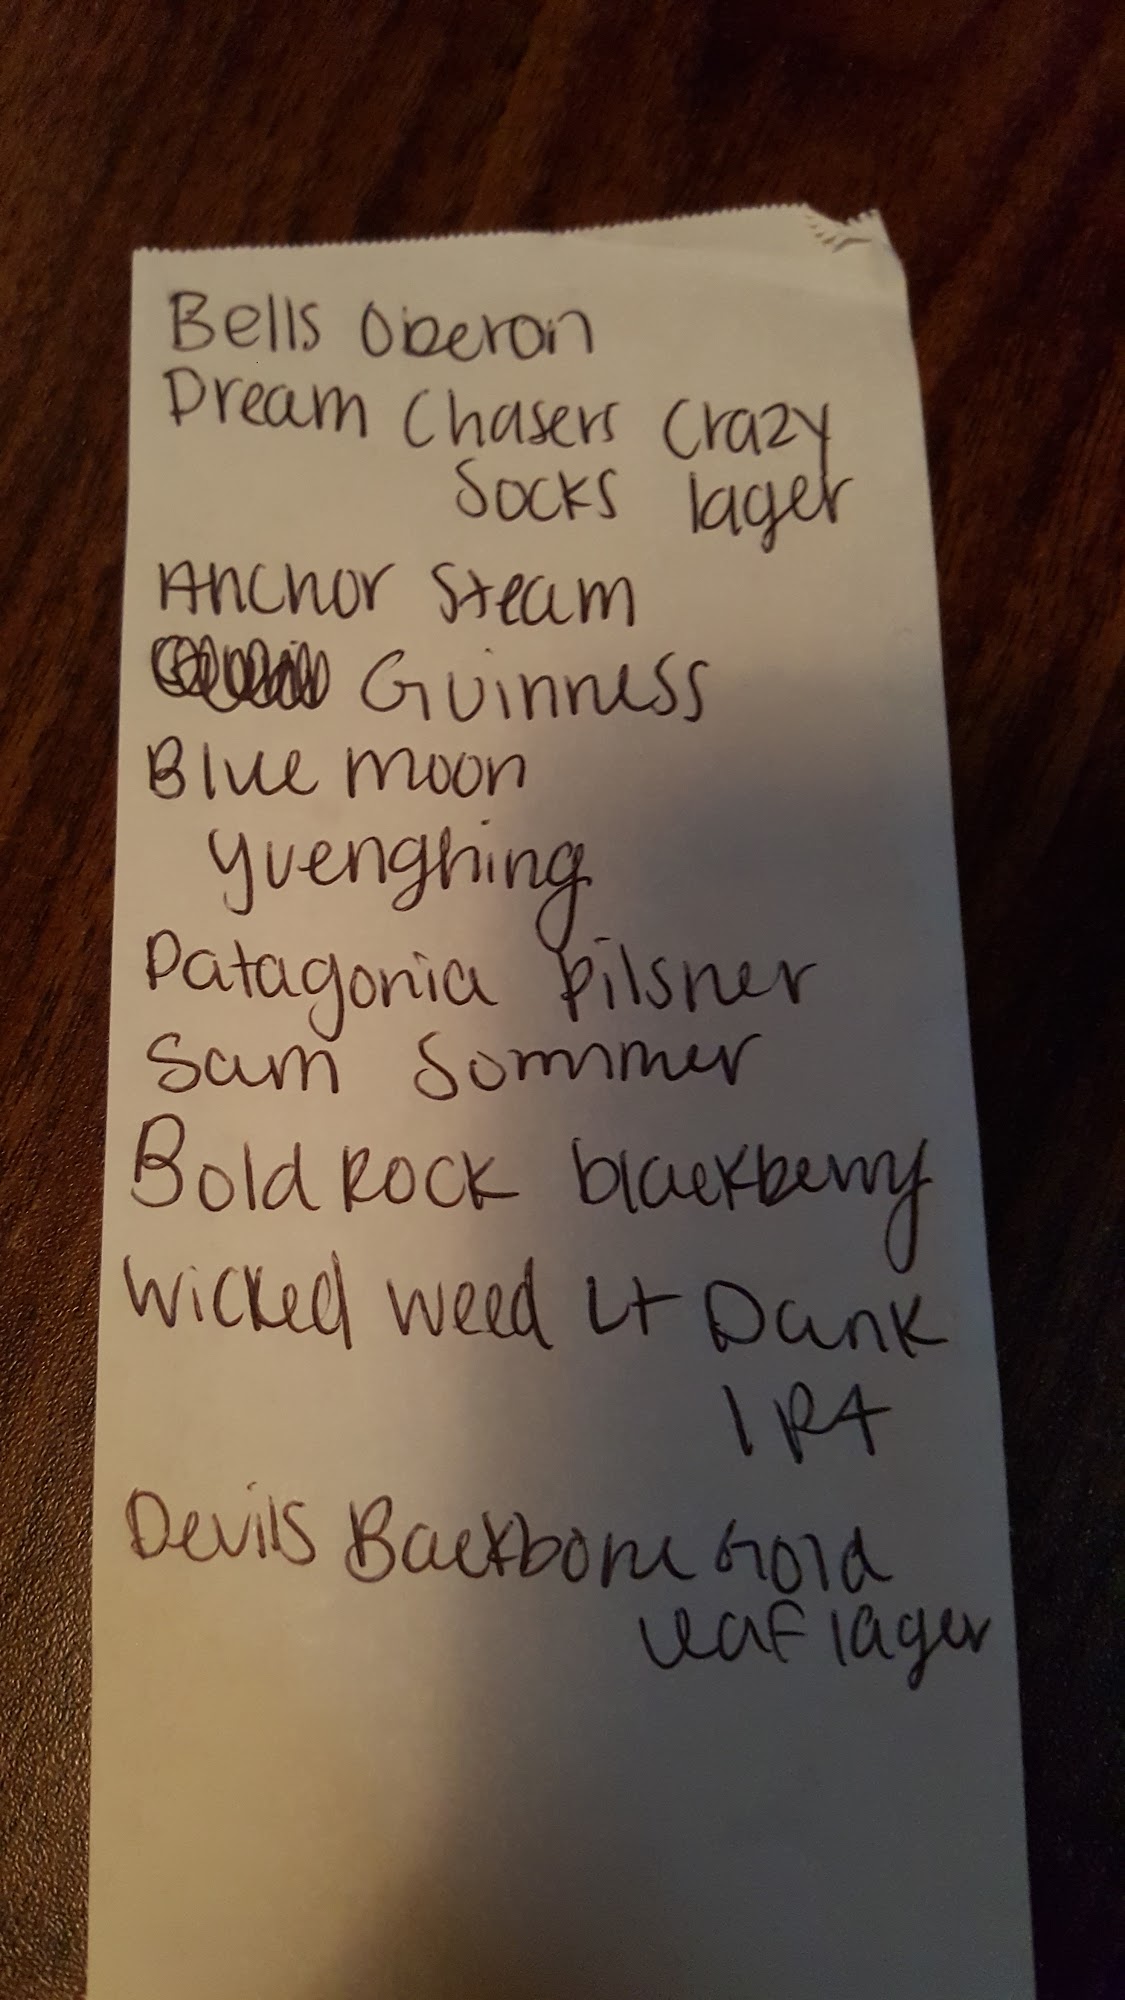 Bells Oberon
Dream Chasers Crazy
Socks lager
Anchor Steam
Guinness
Blue moon
Yuenghing
Patagonia pilsner
Sam Sommer
Bold Rock blackberry
Wicked weed Lt Dank
IPA
Devils Backbone Gold
leaf lager